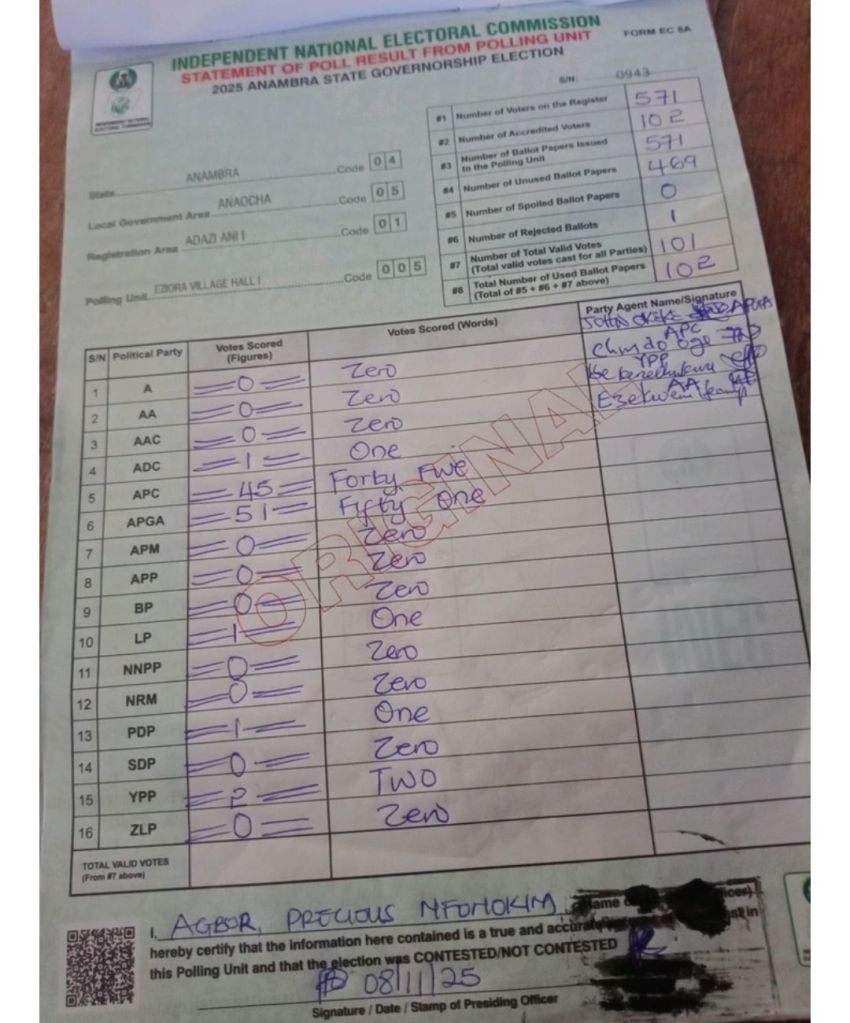 INDEPENDENT NATIONAL ELECTORAL COMMISSION
STATEMENT OF POLL RESULT FROM POLLING UNIT
2025 ANAMBRA STATE GOVERNORSHIP ELECTION
FORM EC 8A
S/N: 0943
INDEPENDENT NATIONAL ELECTORAL COMMISSION
State ANAMBRA Code 0 4
Local Government Area ANAOCHA Code 0 5
Registration Area ADAZI ANI I Code 0 1
Polling Unit EZIORA VILLAGE HALL I Code 0 0 5
#1 Number of Voters on the Register 571
#2 Number of Accredited Voters 102
#3 Number of Ballot Papers Issued to the Polling Unit 571
#4 Number of Unused Ballot Papers 469
#5 Number of Spoiled Ballot Papers 0
#6 Number of Rejected Ballots 1
#7 Number of Total Valid Votes (Total valid votes cast for all Parties) 101
#8 Total Number of Used Ballot Papers (Total of #5 + #6 + #7 above) 102
S/N Political Party Votes Scored (Figures) Votes Scored (Words) Party Agent Name/Signature
APGA
APC
YPP
AA
1 A 0 Zero
2 AA 0 Zero
3 AAC 0 Zero
4 ADC 1 One
5 APC 45 Forty Five
6 APGA 51 Fifty One
7 APM 0 Zero
8 APP 0 Zero
9 BP 0 Zero
10 LP 1 One
11 NNPP 0 Zero
12 NRM 0 Zero
13 PDP 1 One
14 SDP 0 Zero
15 YPP 2 TWO
16 ZLP 0 Zero
ORIGINAL
TOTAL VALID VOTES
(From #7 above)
I, AGBOR, PRECIOUS MFONOKIM
hereby certify that the information here contained is a true and accurate in
this Polling Unit and that the election was CONTESTED/NOT CONTESTED
08/11/25
Signature / Date / Stamp of Presiding Officer